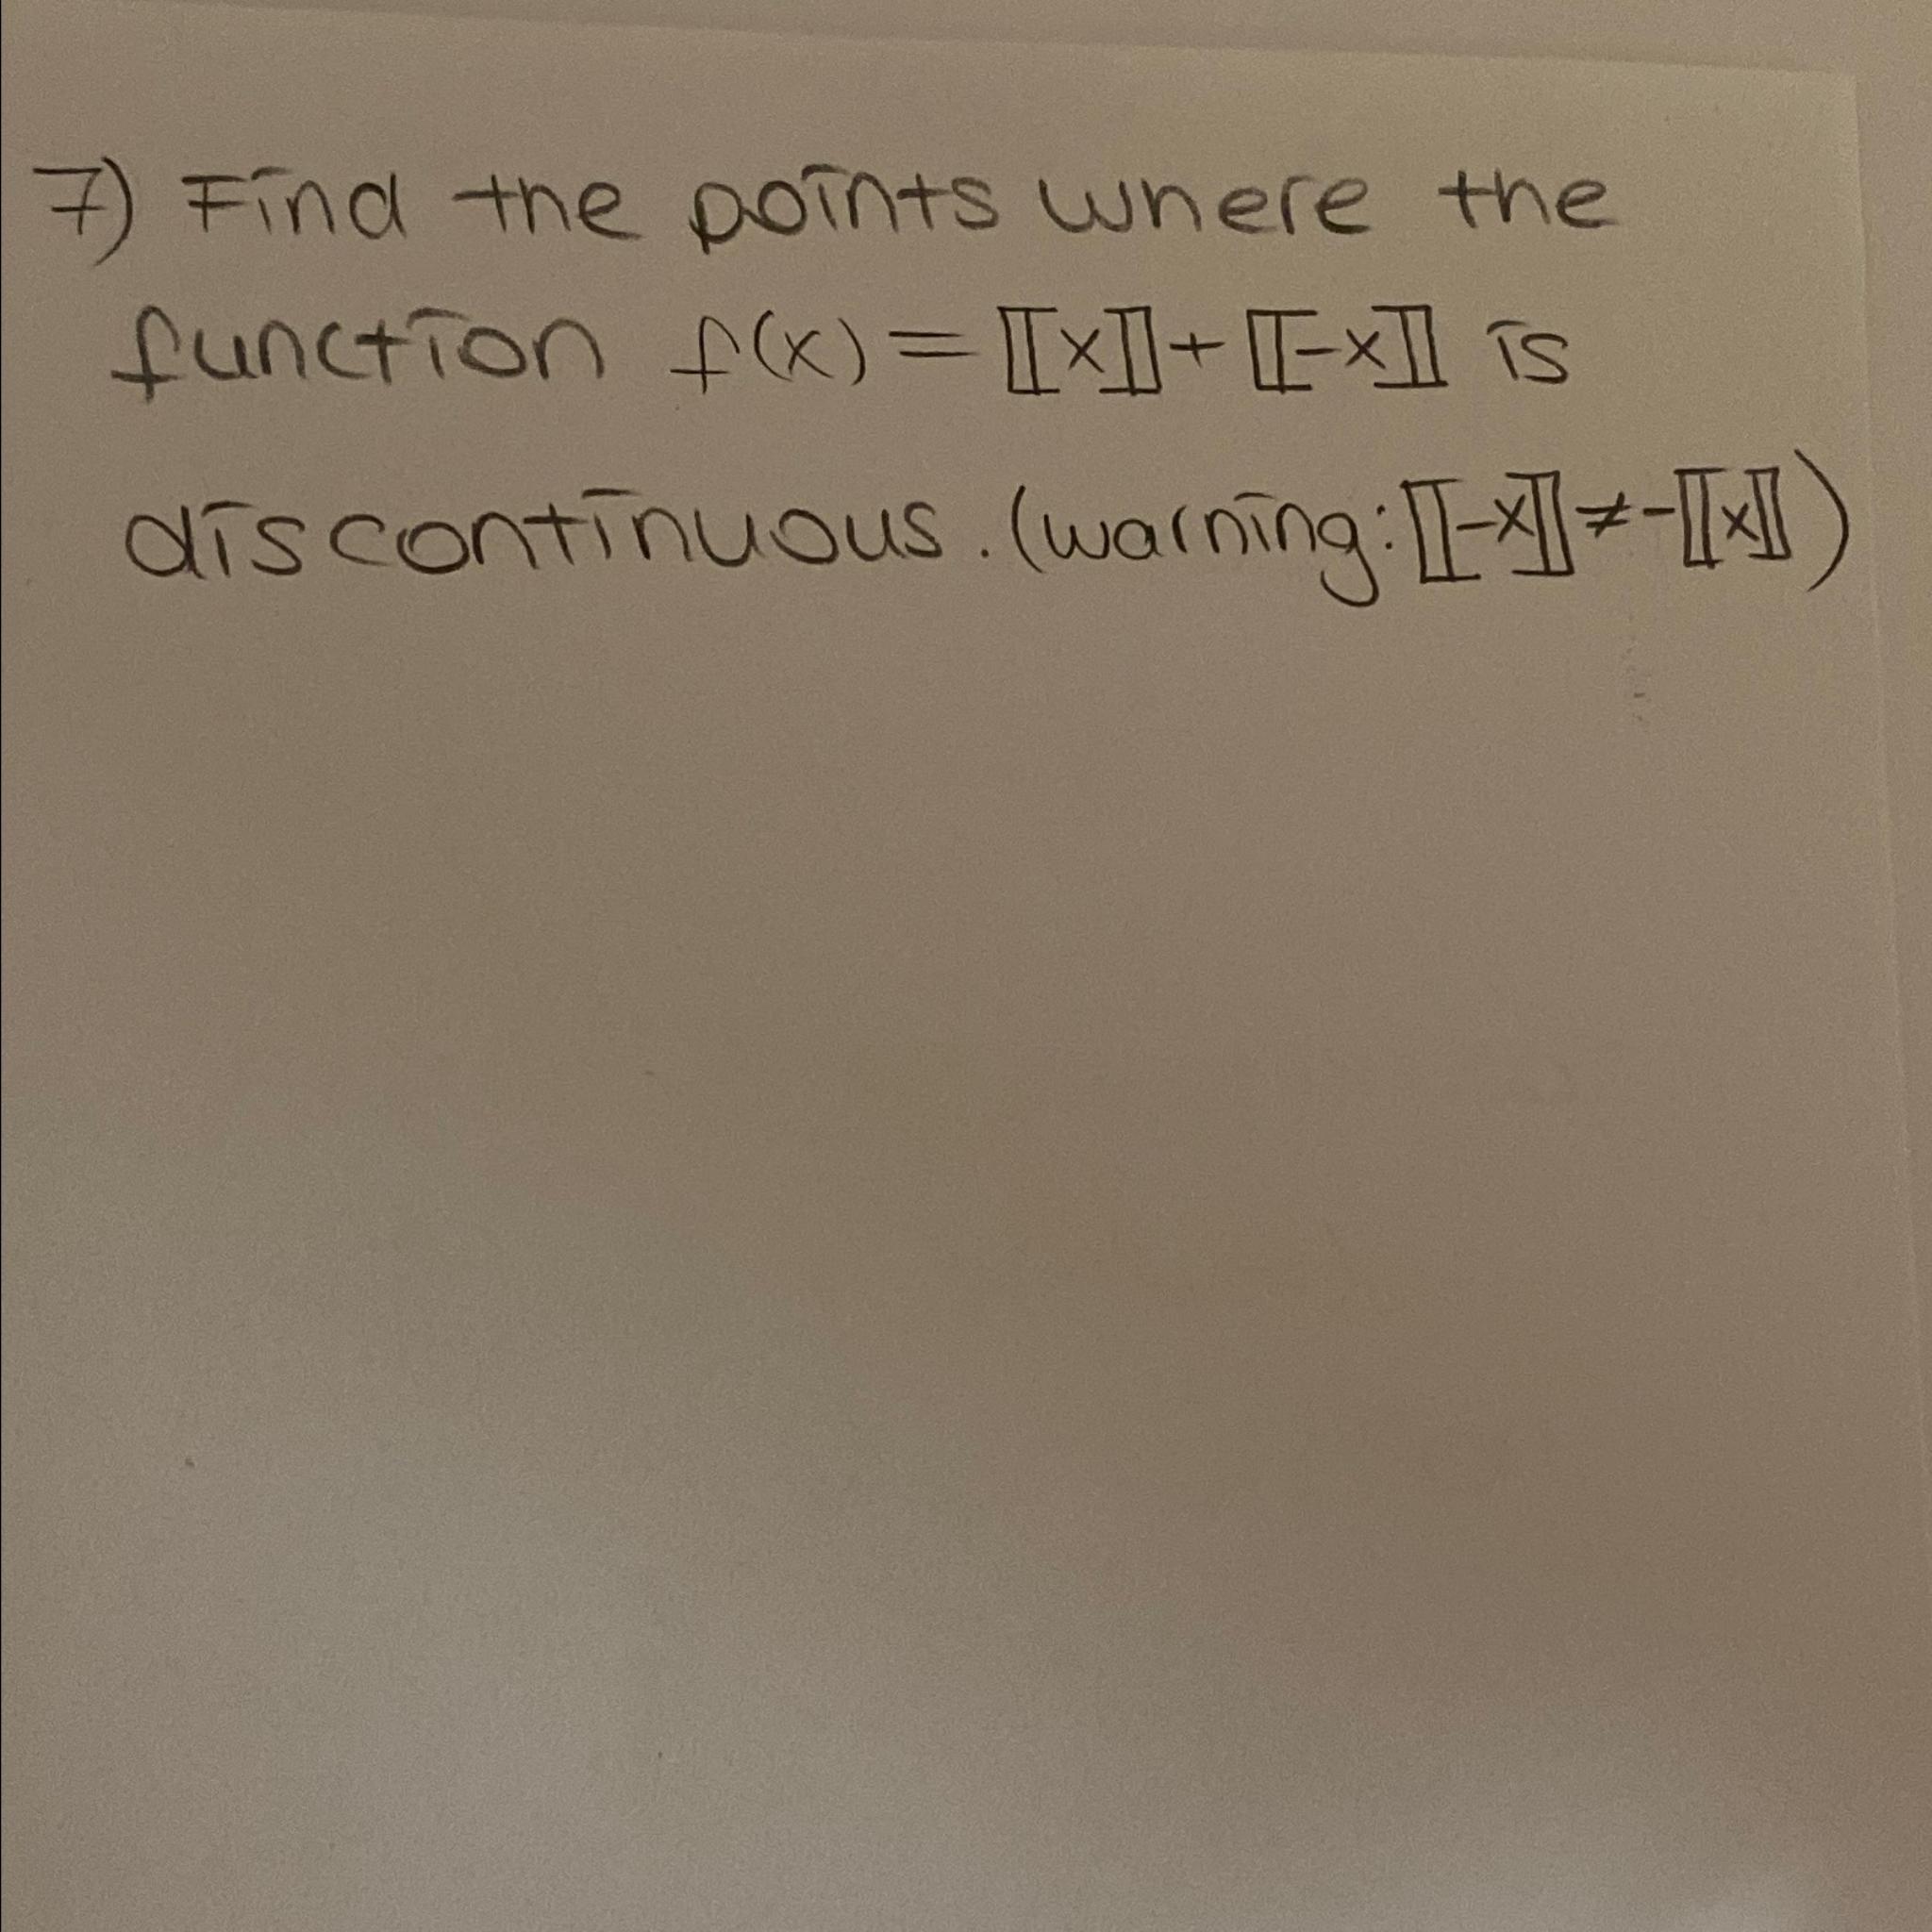 7) Find the points where the
function f(x) = ⟦x⟧ + ⟦-x⟧ is
discontinuous. (warning: ⟦-x⟧ ≠ -⟦x⟧)